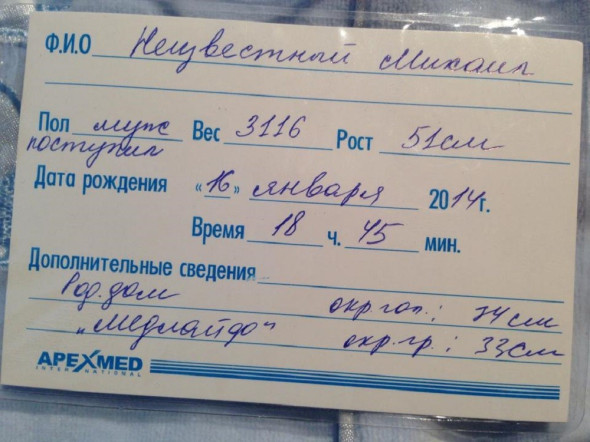 Ф.И.О Неизвестный Михаил
Пол муж Вес 3116 Рост 51см
поступил
Дата рождения «16» января 2014г.
Время 18 ч. 45 мин.
Дополнительные сведения
Род. дом окр. гол.: 34 см
окр. гр.: 33см
APEXMED
INTERNATIONAL